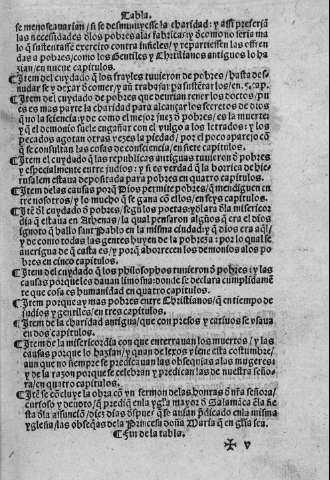 Tabla.
se menoscauarian/ si se desminuyesse la charidad: y assi preferirā
las necessidades dlos pobres alas fabricas: y cō como no seria ma
lo q̄ sustentasse exercito contra infieles/ y repartiessen las offren
das a pobres/como los Gentiles y Christianos antiguos lo ha
zian/en nueue capitulos.
¶ Item del cuydado q̄ los frayles tuuieron de pobres/ hasta des
nudar se y dexar ō comer/y aū trabajar pa sustētar los/en.
¶ Item del cuydado de pobres que deurian tener los doctos/pu
es es mas parte la charidad para alcançar los secretos de dios
q̄ no la sciencia:y de como el mejor juez ō pobres/es la muerte
y q̄ el demonio suele engañar con el vulgo a los letrados: y los
pecados agotan otras vezes la piedad/ por el poco aparejo cō
q̄ se consultan las cosas de consciencia/en siete capitulos.
¶ Item el cuydado q̄ las republicas antiguas tuuieron ō pobres
y especialmente entre judios: y si es verdad q̄ la borrica de hie-
rusalem estaua depositada para pobres en quatro capitulos.
¶ Item delas causas porq̄ Dios permite pobres/q̄ mendiguen en
tre nosotros/ y lo mucho q̄ se gana cō ellos/en seys capitulos.
¶ Itē ōl cuydado ō pobres/ segū los poetas:y ōlara ōla misericor
dia q̄ estaua en Athenas/la qual pensaron algūos q̄ era el dios
ignoto q̄ hallo sant Pablo en la misma ciudad:y q̄ dios era aq̄l/
y de como todas las gentes huyen de la pobreza : por lo qual se
aueriguа de q̄ casta es/y porq̄ aborrecen los demonios alos po
bres en cinco capitulos.
¶ Item del cuydado q̄ los philosophos tuuieron ō pobres :y las
causas porque los dauan limosna:donde se declara cumplidamē
te que cosa es humanidad en quatro capitulos.
¶ Item porque ay mas pobres entre Christianos/q̄ en tiempo de
judios y gentiles/en tres capitulos.
¶ Item de la charidad antigua/que con presos y catiuos se vsaua
en dos capitulos.
¶ Item de la misericordia con que enterrauan los muertos / y las
causas porque lo hazian/y quan de lexos viene esta costumbre/
aun que no siempre se predicauan las obsequias a las mugeres:
y de la razon porque se celebran y predican las de nuestra seño-
ra/en quatro capitulos.
¶ Itē se cōcluye la obra cō vn sermon delas honras ō nr̄a señora/
curioso y deuoto/q̄ predicā en la ygl̄ia mayor ō Salamāca ēla fie
sta ōla assunciō/diez dias ōspues q̄ se auian p̄dicado enla misma
yglesia/las obseq̄as de la Princesa doña Maria q̄ en gl̄ia sea.
¶ Fin de la tabla.
✠ v